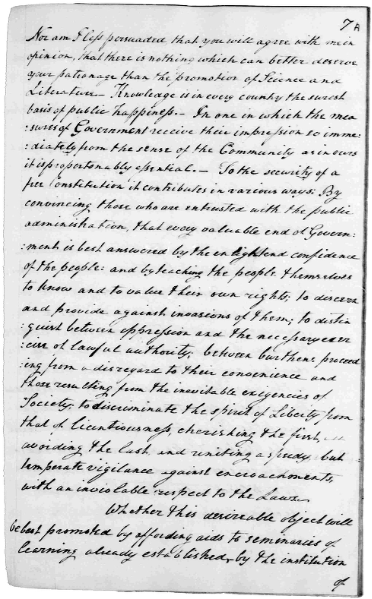 7A
Nor am I less persuaded that you will agree with me in
opinion, that there is nothing which can better deserve
your patronage than the promotion of Science and
Literature — Knowledge is in every country the surest
basis of public happiness. — In one in which the mea
:sures of Government receive their impression so imme
:diately from the sense of the Community as in ours
it is proportionably essential. — To the security of a
free Constitution it contributes in various ways: By
convincing those who are entrusted with the public
administration, that every valuable end of Govern-
:ment is best answered by the enlightend confidence
of the people: and by teaching the people themselves
to know and to value their own rights; to discern
and provide against invasions of them; to distin
:guish between oppression and the necessary exer
:cise of lawful authority; between burthens proceed
ing from a disregard to their convenience and
those resulting from the inevitable exigencies of
Society; to discriminate the spirit of Liberty from
that of licentiousness, cherishing the first,
avoiding the last and uniting a speedy but
temperate vigilance against encroachments,
with an inviolable respect to the Laws.
Whether this desireable object will
be best promoted by affording aids to seminaries of
learning already established, by the institution
of